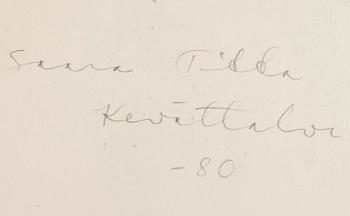 Saara Tikka
Kevättalvi
-80